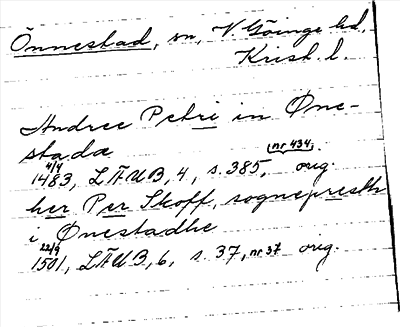 Önnestad, sn, V. Göinge hd,
Krist. l.
Andree Petri in Øne-
stada
4/4 1483, LÄUB, 4, s. 385, (nr 434) orig.
her Per Skoff, sognepresth
i Ønestadhe
22/9 1501, LÄUB, 6, s. 37, nr 37 orig.